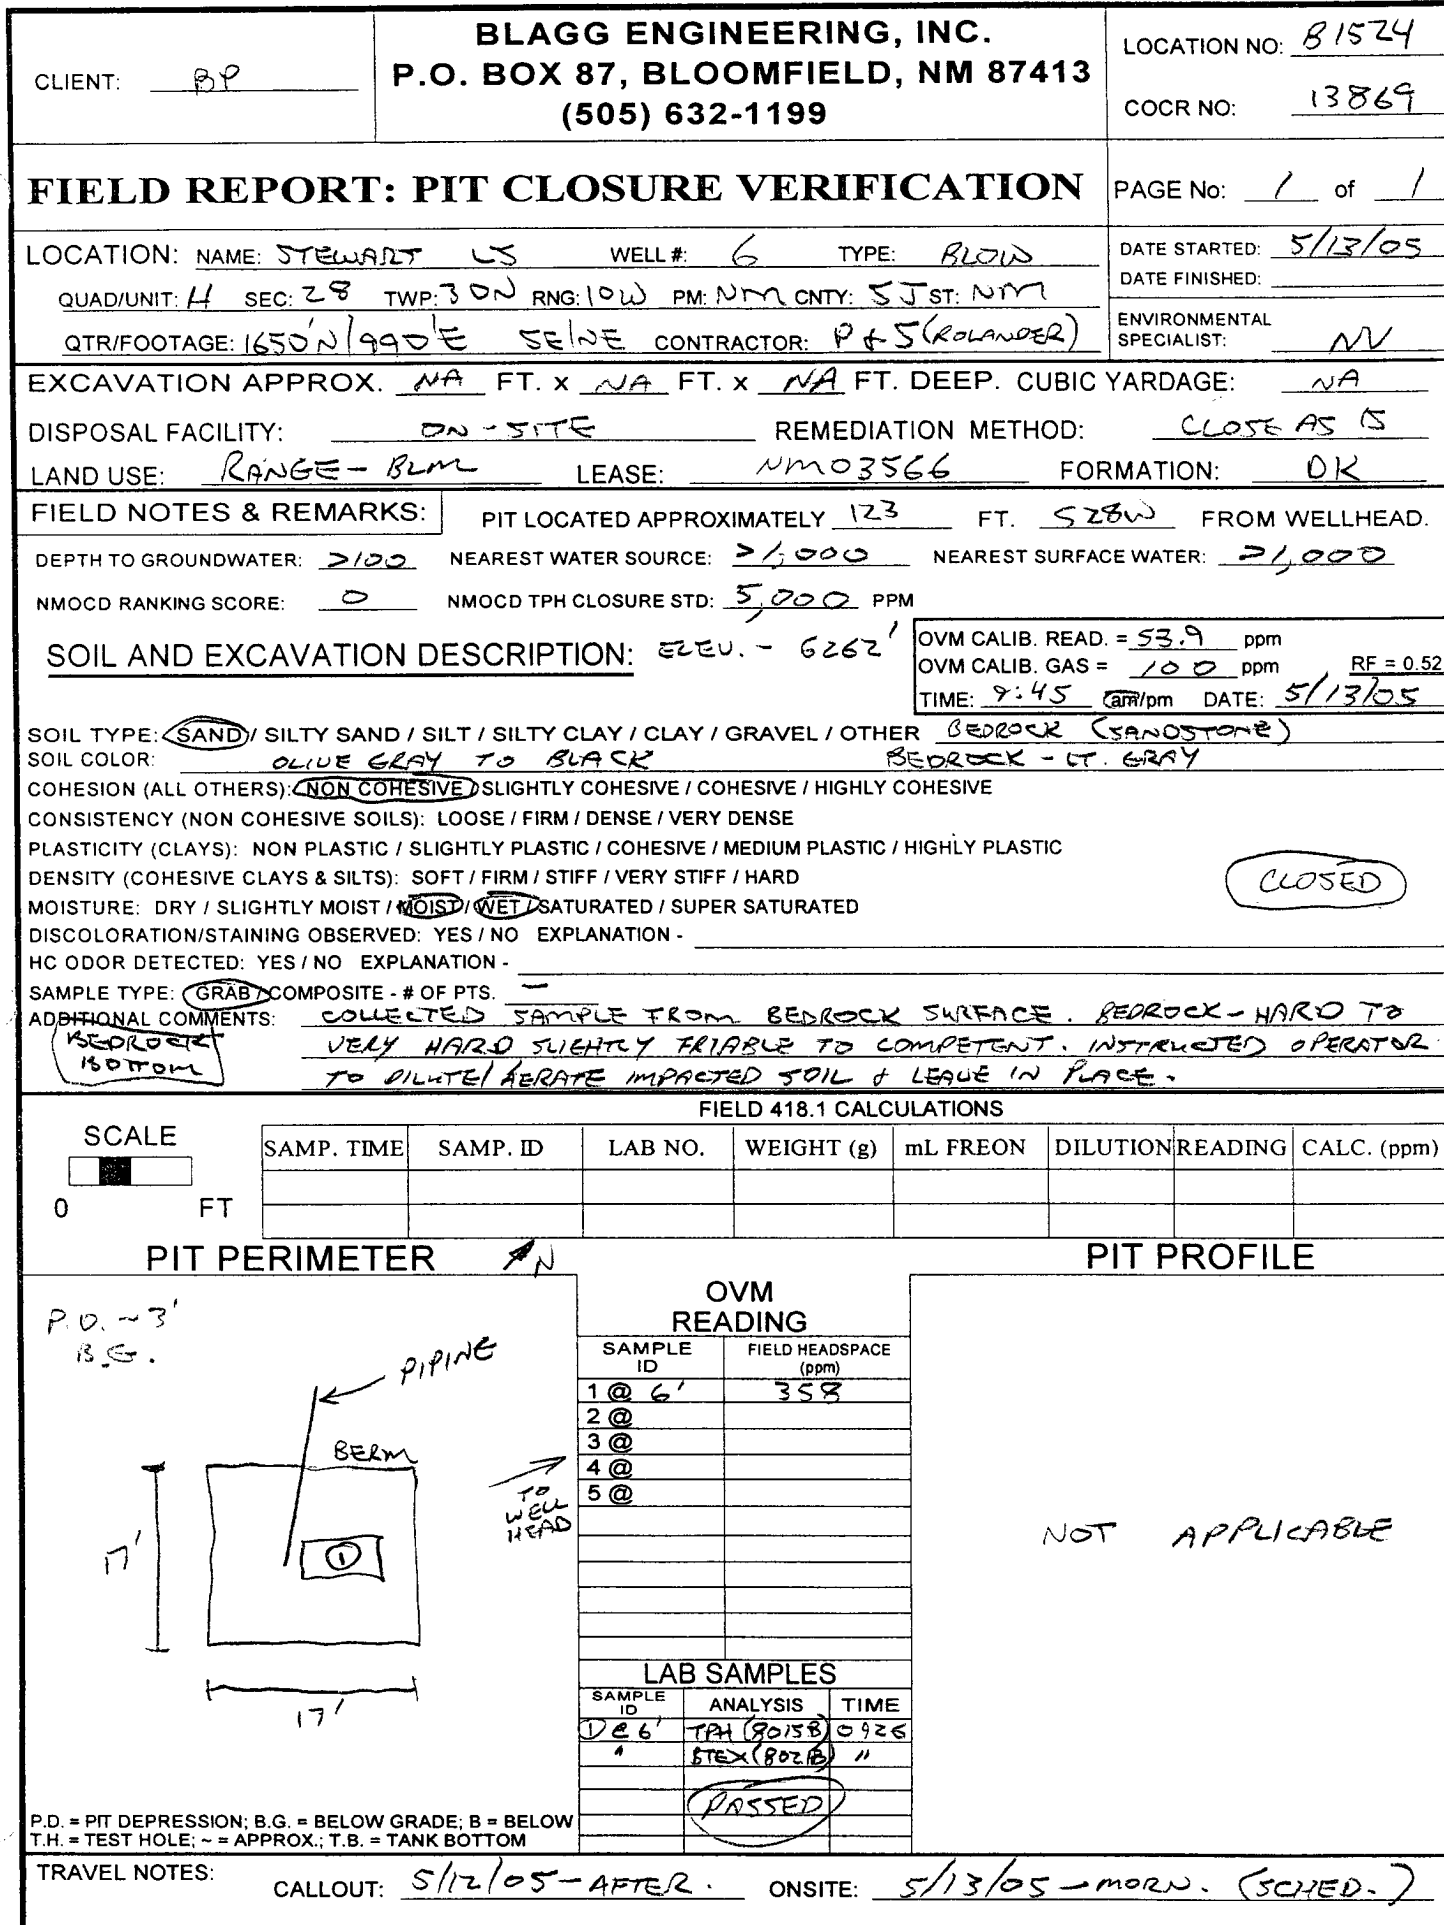 CLIENT: BP
BLAGG ENGINEERING, INC.
P.O. BOX 87, BLOOMFIELD, NM 87413
(505) 632-1199
LOCATION NO: B1524
COCR NO: 13869
FIELD REPORT: PIT CLOSURE VERIFICATION
PAGE No: 1 of 1
LOCATION: NAME: STEWART LS WELL #: 6 TYPE: BLOW
QUAD/UNIT: H SEC: 28 TWP: 30N RNG: 10W PM: NM CNTY: SJ ST: NM
QTR/FOOTAGE: 1650'N/990'E SE/NE CONTRACTOR: P & S (ROLANDER)
DATE STARTED: 5/13/05
DATE FINISHED:
ENVIRONMENTAL
SPECIALIST: NV
EXCAVATION APPROX. NA FT. x NA FT. x NA FT. DEEP. CUBIC YARDAGE: NA
DISPOSAL FACILITY: ON-SITE REMEDIATION METHOD: CLOSE AS IS
LAND USE: RANGE - BLM LEASE: NM03566 FORMATION: DK
FIELD NOTES & REMARKS: PIT LOCATED APPROXIMATELY 123 FT. S28W FROM WELLHEAD.
DEPTH TO GROUNDWATER: >100 NEAREST WATER SOURCE: >1,000 NEAREST SURFACE WATER: >1,000
NMOCD RANKING SCORE: 0 NMOCD TPH CLOSURE STD: 5,000 PPM
SOIL AND EXCAVATION DESCRIPTION: ELEV. - 6262'
OVM CALIB. READ. = 53.9 ppm
OVM CALIB. GAS = 100 ppm RF = 0.52
TIME: 9:45 am/pm DATE: 5/13/05
SOIL TYPE: SAND / SILTY SAND / SILT / SILTY CLAY / CLAY / GRAVEL / OTHER BEDROCK (SANDSTONE)
SOIL COLOR: OLIVE GRAY TO BLACK BEDROCK - LT. GRAY
COHESION (ALL OTHERS): NON COHESIVE / SLIGHTLY COHESIVE / COHESIVE / HIGHLY COHESIVE
CONSISTENCY (NON COHESIVE SOILS): LOOSE / FIRM / DENSE / VERY DENSE
PLASTICITY (CLAYS): NON PLASTIC / SLIGHTLY PLASTIC / COHESIVE / MEDIUM PLASTIC / HIGHLY PLASTIC
DENSITY (COHESIVE CLAYS & SILTS): SOFT / FIRM / STIFF / VERY STIFF / HARD
CLOSED
MOISTURE: DRY / SLIGHTLY MOIST / MOIST / WET / SATURATED / SUPER SATURATED
DISCOLORATION/STAINING OBSERVED: YES / NO EXPLANATION -
HC ODOR DETECTED: YES / NO EXPLANATION -
SAMPLE TYPE: GRAB / COMPOSITE - # OF PTS. —
ADDITIONAL COMMENTS: COLLECTED SAMPLE FROM BEDROCK SURFACE. BEDROCK - HARD TO
VERY HARD SLIGHTLY FRIABLE TO COMPETENT. INSTRUCTED OPERATOR
TO DILUTE/AERATE IMPACTED SOIL & LEAVE IN PLACE.
BEDROCK
BOTTOM
FIELD 418.1 CALCULATIONS
SCALE
0 FT
SAMP. TIME SAMP. ID LAB NO. WEIGHT (g) mL FREON DILUTION READING CALC. (ppm)
PIT PERIMETER N
PIT PROFILE
P.D. ~ 3'
B.G.
PIPING
BERM
TO
WELL
HEAD
1
17'
17'
OVM
READING
SAMPLE ID FIELD HEADSPACE (ppm)
1 @ 6' 358
2 @
3 @
4 @
5 @
NOT APPLICABLE
LAB SAMPLES
SAMPLE ID ANALYSIS TIME
1 @ 6' TPH (8015B) 0926
" BTEX (8021B) "
PASSED
P.D. = PIT DEPRESSION; B.G. = BELOW GRADE; B = BELOW
T.H. = TEST HOLE; ~ = APPROX.; T.B. = TANK BOTTOM
TRAVEL NOTES: CALLOUT: 5/12/05 - AFTER. ONSITE: 5/13/05 - MORN. (SCHED.)